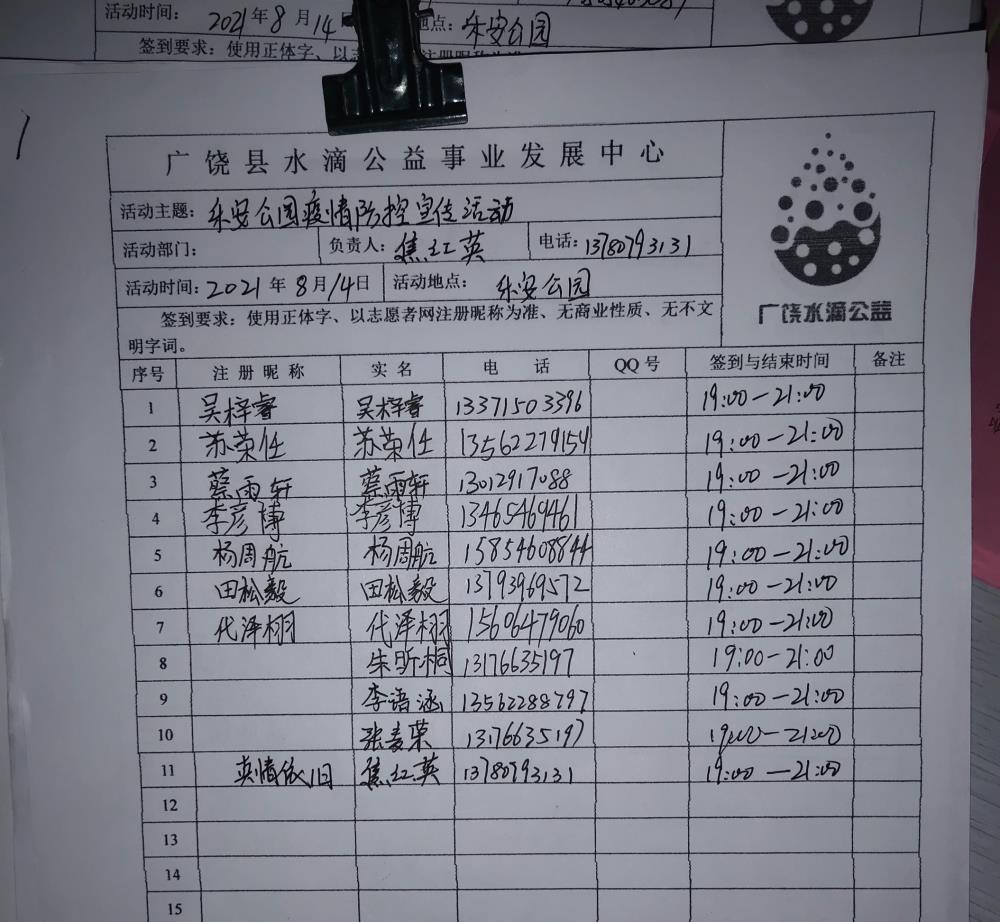 活动时间： 2021年8月14 地点： 乐安公园
签到要求：使用正体字、以志愿者网注册昵称为准
1
广饶县水滴公益事业发展中心
活动主题：乐安公园疫情防控宣传活动
活动部门： 负责人：焦红英 电话：13780793131
活动时间：2021年8月14日 活动地点： 乐安公园
签到要求：使用正体字、以志愿者网注册昵称为准、无商业性质、无不文
明字词。
广饶水滴公益
序号 注册昵称 实名 电话 QQ号 签到与结束时间 备注
1 吴梓睿 吴梓睿 13371503396 19:00-21:00
2 苏荣任 苏荣任 13562279154 19:00-21:00
3 蔡雨轩 蔡雨轩 13012917088 19:00-21:00
4 李彦博 李彦博 13465469461 19:00-21:00
5 杨周航 杨周航 15854608844 19:00-21:00
6 田松毅 田松毅 13793969572 19:00-21:00
7 代泽栩 代泽栩 15606479060 19:00-21:00
8 朱昕桐 13176635197 19:00-21:00
9 李语涵 13562288797 19:00-21:00
10 张麦荣 13176635197 19:00-21:00
11 真情依旧 焦红英 13780793131 19:00-21:00
12
13
14
15